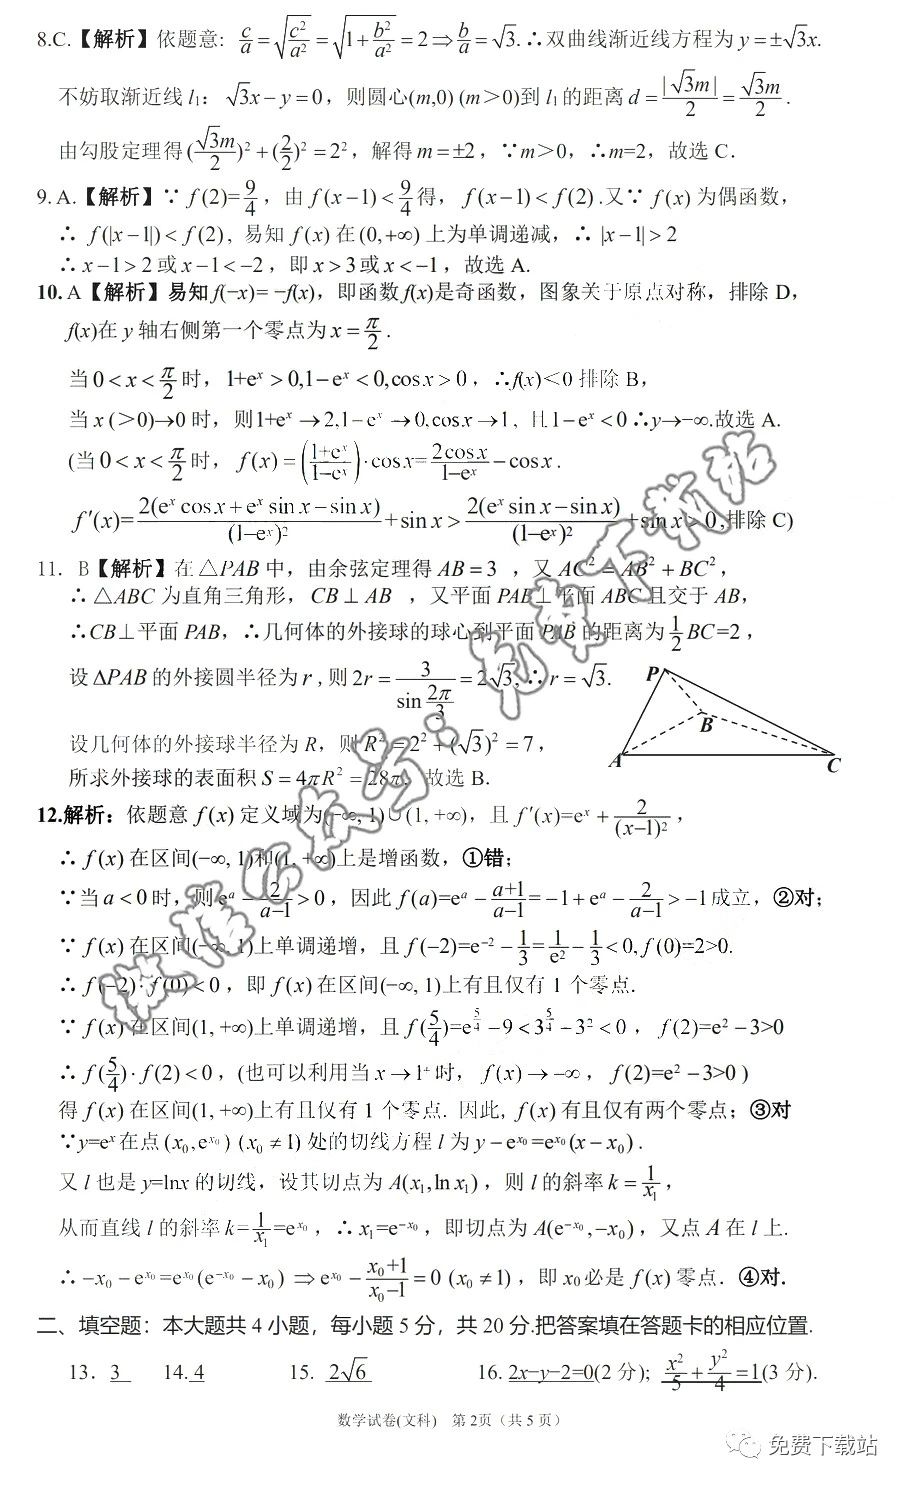 8.C.【解析】依题意: c/a=√(c²/a²)=√(1+b²/a²)=2⇒b/a=√3.∴双曲线渐近线方程为y=±√3x.
不妨取渐近线l₁: √3x−y=0，则圆心(m,0) (m＞0)到l₁的距离d=|√3m|/2=√3m/2.
由勾股定理得(√3m/2)²+(2/2)²=2²，解得m=±2，∵m＞0，∴m=2，故选C.
9.A.【解析】∵f(2)=9/4，由f(x−1)<9/4得，f(x−1)<f(2).又∵f(x)为偶函数，
∴ f(|x−1|)<f(2), 易知f(x)在(0,+∞)上为单调递减，∴|x−1|>2
∴x−1>2或x−1<−2，即x>3或x<−1，故选A.
10. A【解析】易知f(−x)= −f(x)，即函数f(x)是奇函数，图象关于原点对称，排除D，
f(x)在y轴右侧第一个零点为x=π/2.
当0<x<π/2时，1+eˣ>0,1−eˣ<0,cosx>0，∴f(x)＜0排除B，
当x(＞0)→0时，则1+eˣ→2,1−eˣ→0,cosx→1, 且1−eˣ<0∴y→−∞.故选A.
(当0<x<π/2时，f(x)=((1+eˣ)/(1−eˣ))·cosx=2cosx/(1−eˣ)−cosx.
f′(x)=2(eˣcosx+eˣsinx−sinx)/(1−eˣ)²+sinx>2(eˣsinx−sinx)/(1−eˣ)²+sinx>0,排除C)
11．B【解析】在△PAB中，由余弦定理得AB=3 ，又AC²=AB²+BC²，
∴△ABC为直角三角形，CB⊥AB ，又平面PAB⊥平面ABC且交于AB，
∴CB⊥平面PAB，∴几何体的外接球的球心到平面PAB的距离为1/2BC=2，
设ΔPAB的外接圆半径为r,则2r=3/sin(2π/3)=2√3,∴r=√3.
P
B
A
C
设几何体的外接球半径为R，则R²=2²+(√3)²=7，
所求外接球的表面积S=4πR²=28π，故选B.
12.解析：依题意f(x)定义域为(−∞, 1)∪(1, +∞)，且f′(x)=eˣ+2/(x−1)²，
∴f(x)在区间(−∞, 1)和(1, +∞)上是增函数，①错；
∵当a<0时，则eᵃ−2/(a−1)>0，因此f(a)=eᵃ−(a+1)/(a−1)=−1+eᵃ−2/(a−1)>−1成立，②对；
∵f(x)在区间(−∞, 1)上单调递增，且f(−2)=e⁻²−1/3=1/e²−1/3<0,f(0)=2>0.
∴f(−2)·f(0)<0，即f(x)在区间(−∞, 1)上有且仅有1个零点.
∵f(x)在区间(1, +∞)上单调递增，且f(5/4)=e^(5/4)−9<3^(5/4)−3²<0，f(2)=e²−3>0
∴f(5/4)·f(2)<0，(也可以利用当x→1⁺时，f(x)→−∞，f(2)=e²−3>0 )
得f(x)在区间(1, +∞)上有且仅有1个零点. 因此, f(x)有且仅有两个零点；③对
∵y=eˣ在点(x₀,e^(x₀)) (x₀≠1)处的切线方程l为y−e^(x₀)=e^(x₀)(x−x₀).
又l也是y=lnx的切线，设其切点为A(x₁,lnx₁)，则l的斜率k=1/x₁，
从而直线l的斜率k=1/x₁=e^(x₀)，∴x₁=e^(−x₀)，即切点为A(e^(−x₀),−x₀)，又点A在l上.
∴−x₀−e^(x₀)=e^(x₀)(e^(−x₀)−x₀)⇒e^(x₀)−(x₀+1)/(x₀−1)=0 (x₀≠1)，即x₀必是f(x)零点．④对.
二、填空题：本大题共4小题，每小题5分，共20分.把答案填在答题卡的相应位置.
13．3 14. 4 15. 2√6 16. 2x−y−2=0(2分); x²/5+y²/4=1(3分).
数学试卷(文科) 第2页（共5页）
微信公众号：免费下载站
免费下载站